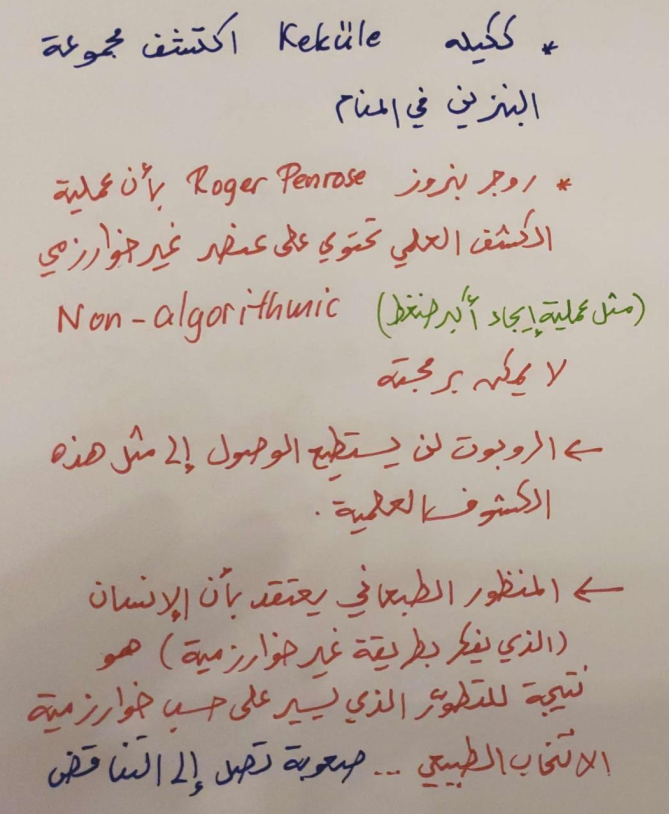 * ككيله Kekule اكتشف مجموعة
البنزين في المنام
* روجر بنروز Roger Penrose بأن عملية
الكشف العلمي تحتوي على عنصر غير خوارزمي
(مثل عملية إيجاد أكبر ضغط) Non-algorithmic
لا يمكن برمجته
← الروبوت لن يستطيع الوصول إلى مثل هذه
الكشوف العلمية.
← المنظور الطبعاني يعتقد بأن الإنسان
(الذي يفكر بطريقة غير خوارزمية) هو
نتيجة للتطوّر الذي يسير على حسب خوارزمية
الانتخاب الطبيعي ... صعوبة تصل إلى التناقض